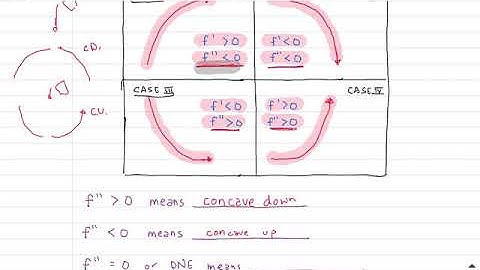 CD.
f' > 0 f' < 0
f" < 0 f" < 0
CASE III CASE IV
f' < 0 f' > 0
f" > 0 f" > 0
CU.
f" > 0 means concave down
f" < 0 means concave up
f" = 0 or DNE means